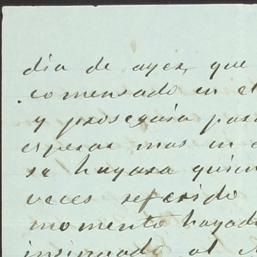 dia de ayer, que
comensado en el
y proseguia para
esperar mas en
se hayara quien
veces referido
momento hayada
insinuado al